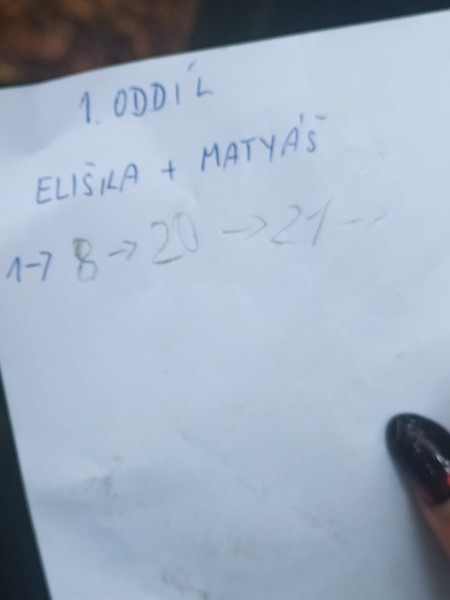 1. ODDÍL
ELIŠKA + MATYÁŠ
1→ 8 → 20 → 21 →